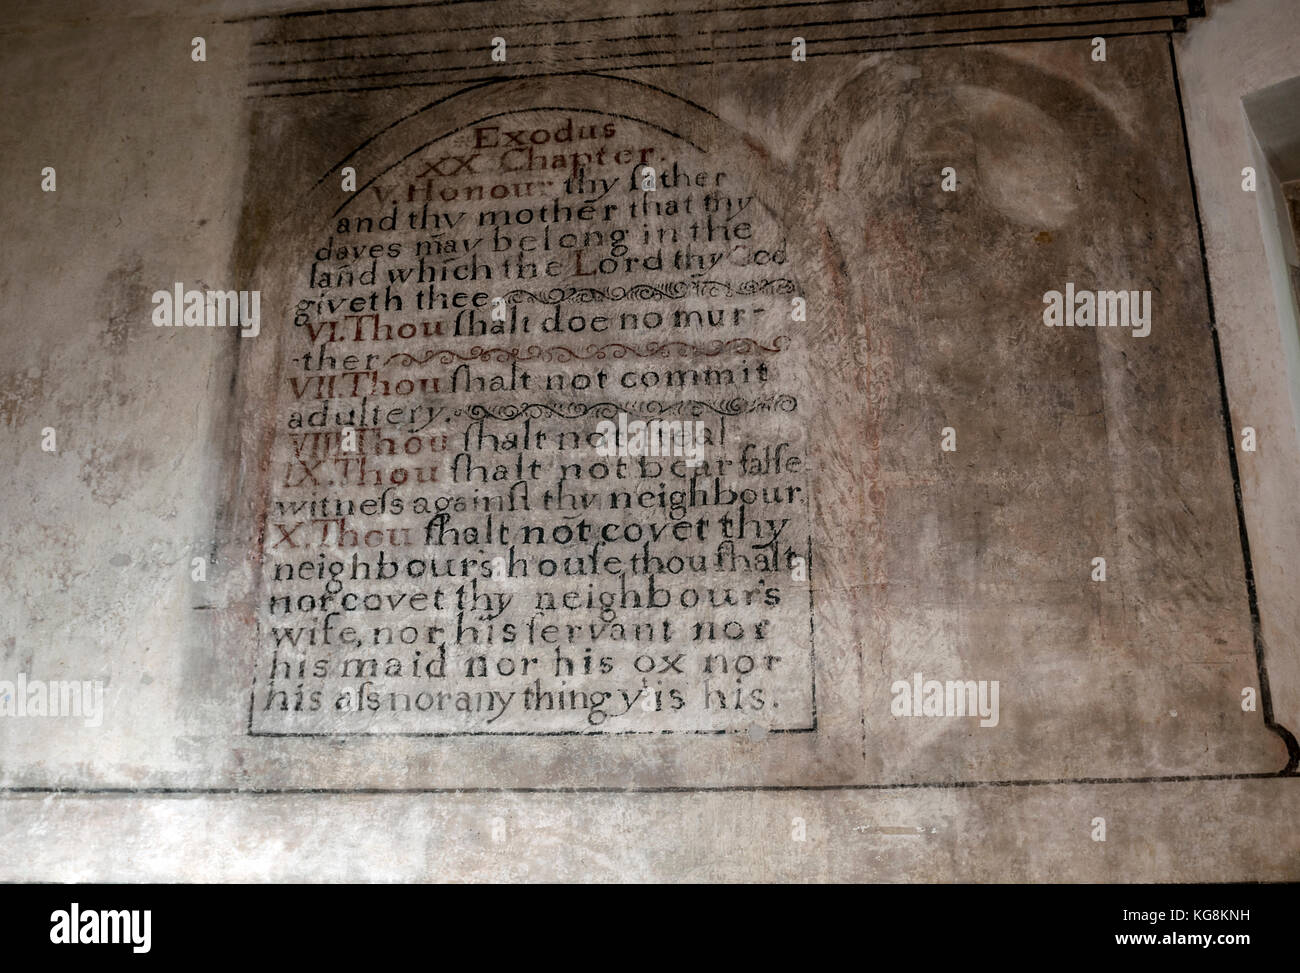 Exodus
XX Chapter.
V. Honour thy father
and thy mother that thy
dayes may be long in the
land which the Lord thy God
giveth thee.
VI. Thou ſhalt doe no mur-
-ther
VII. Thou ſhalt not commit
adultery.
VIII. Thou ſhalt not ſteal
IX. Thou ſhalt not bear falſe
witneſs againſt thy neighbour.
X. Thou ſhalt not covet thy
neighbour's houſe thou ſhalt
not covet thy neighbour's
wife, nor his ſervant nor
his maid nor his ox nor
his aſs nor any thing yt is his.
a alamy stock photo
alamy
a alamy
www.alamy.com
KG8KNH